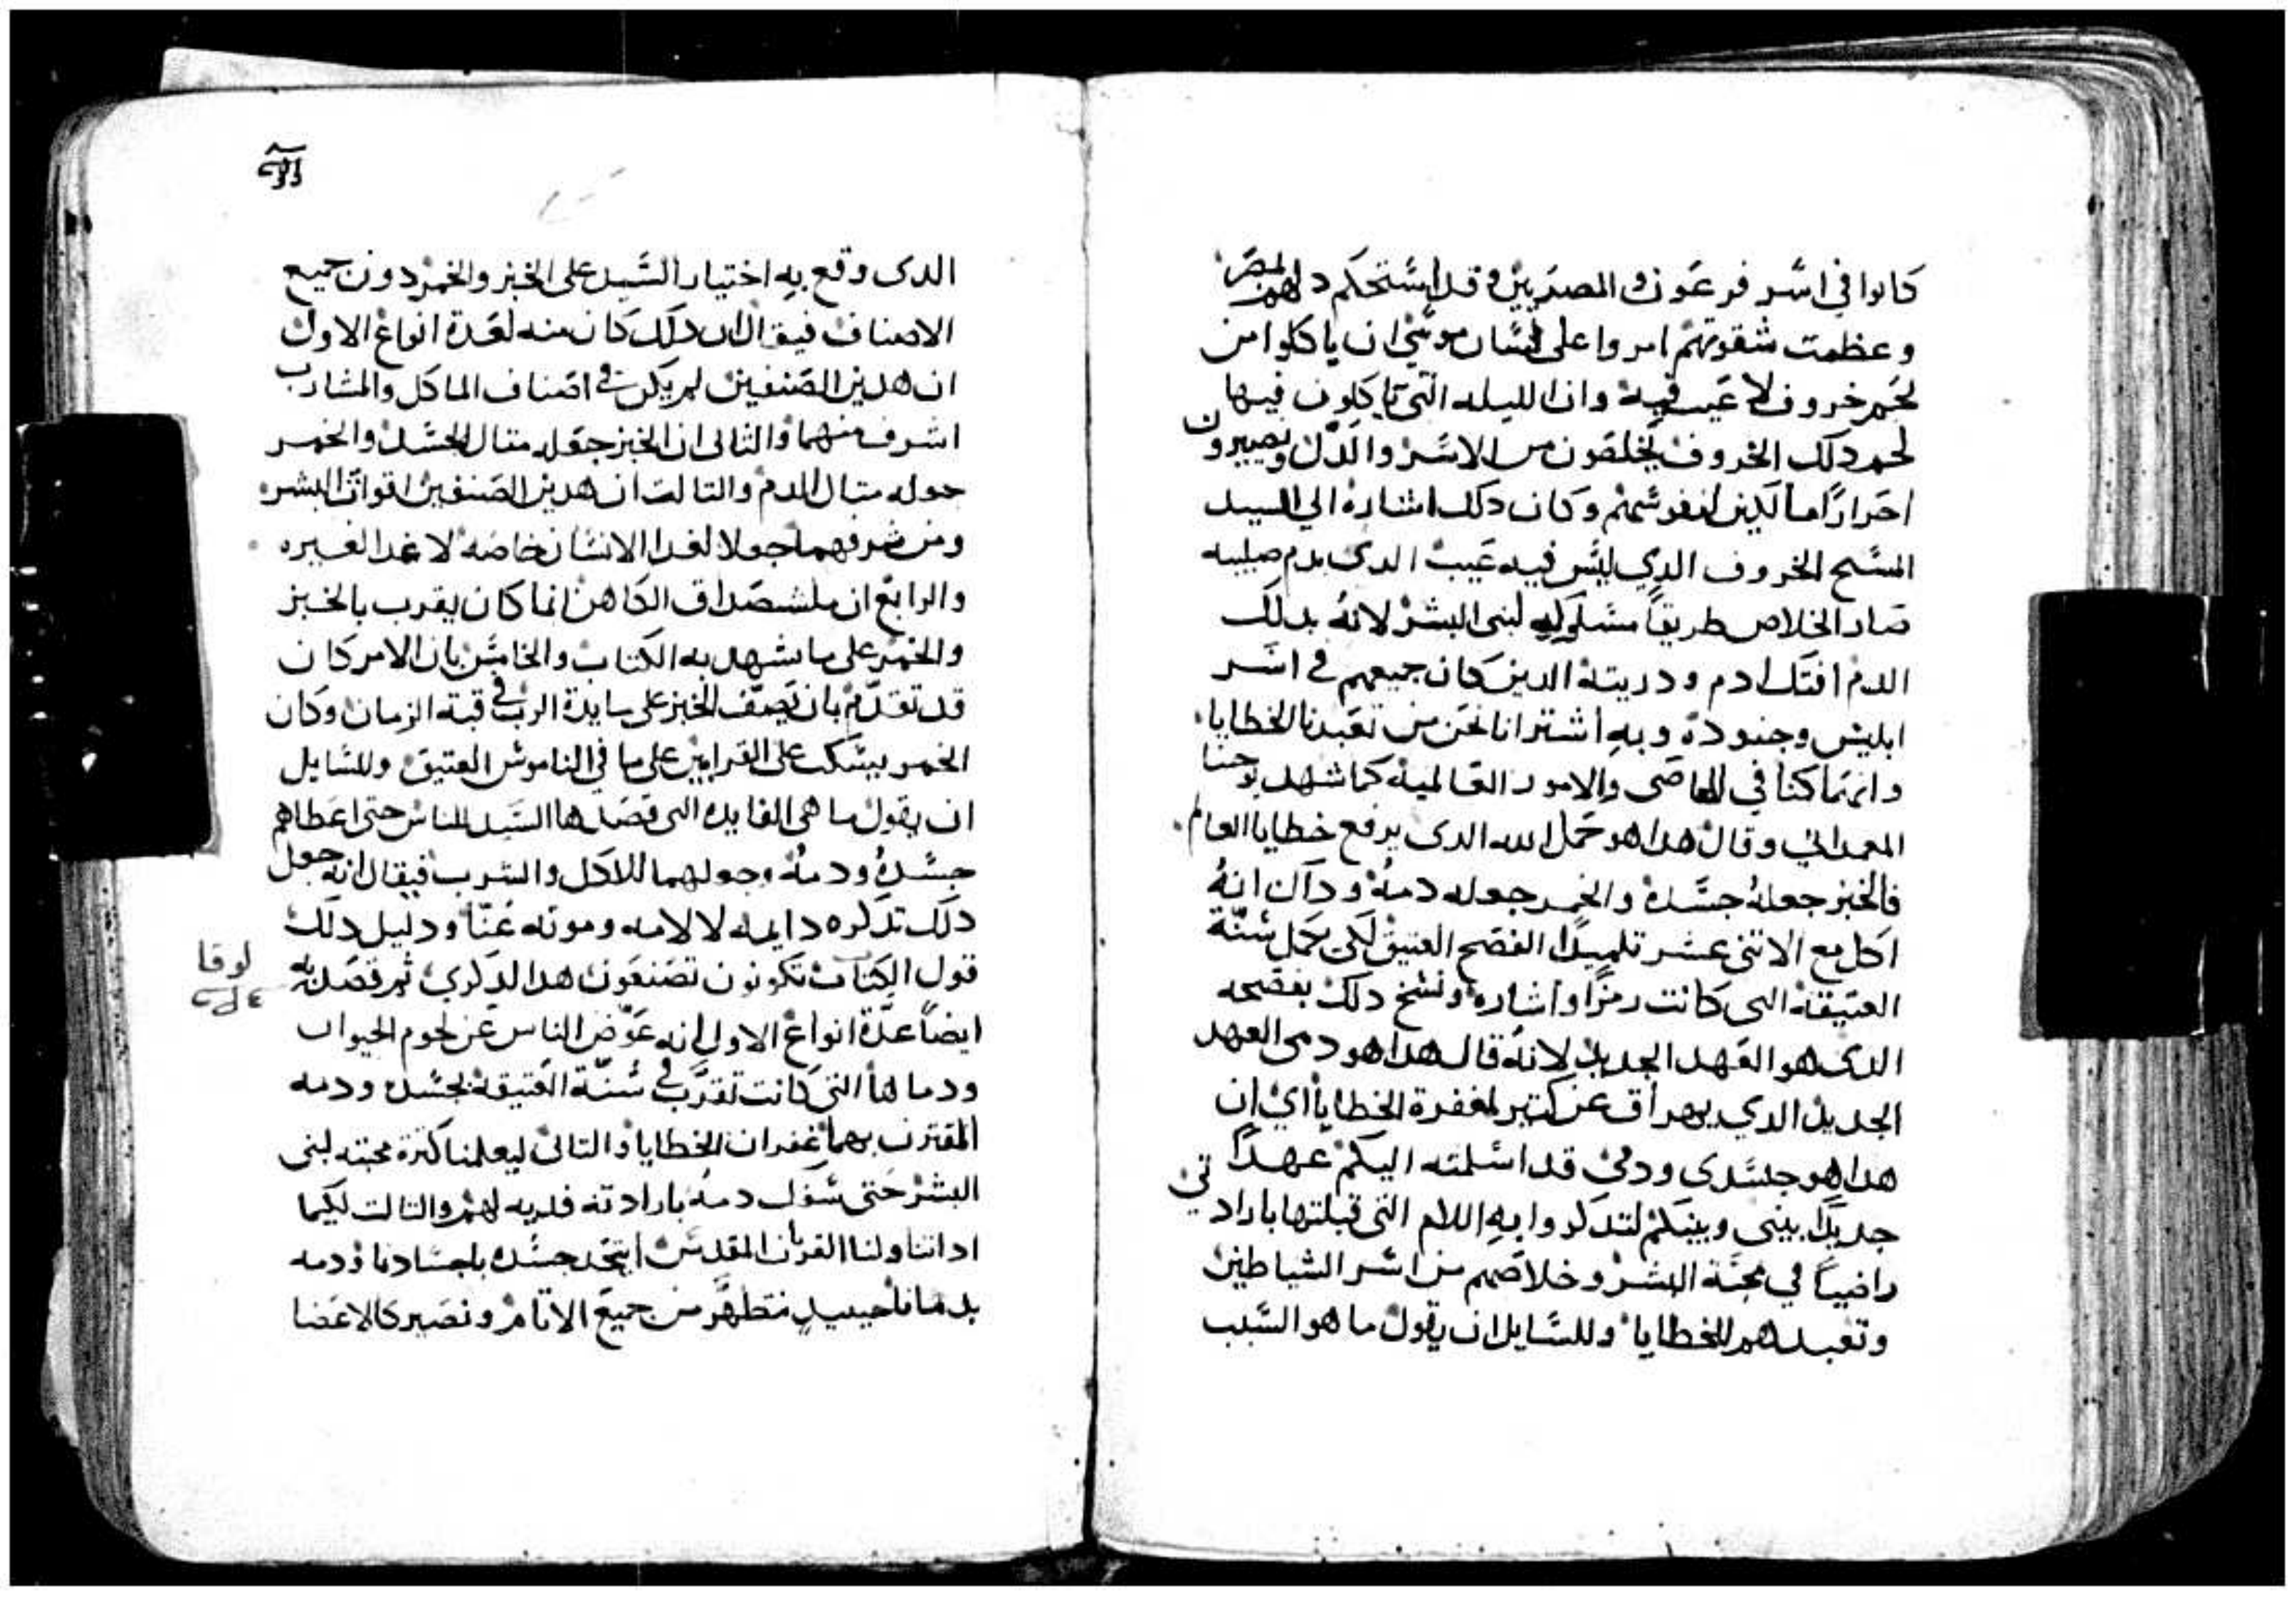 كانوا في اسر فرعون والمصريين وقد استحكم لهم
وعظمت شقوتهم امروا على لسان موسى ان ياكلوا من
لحم خروف لا عيب فيه وان الليله التي تاكلون فيها
لحم دلك الخروف تخلصون من الاسر والدل وتصيرون
احرارًا مالكين لنفوسهم وكان دلك اشارة الي السيد
المسيح الخروف الدي ليس فيه عيب الدى بدم صليبه
صار الخلاص طريقاً مسلوكه لبنى البشر لانه بدلك
الدم افتك ادم ودريته الدين كان جميعهم في اسر
ابليس وجنوده وبه اشترانا نحن من تعبدنا للخطايا
وانما كنا في المعاصى والامور العالمية كما شهد يوحنا
المعمدانى وقال هدا هو حمل الله الدى يرفع خطايا العالم
فالخبز جعله جسده والخمر جعله دمه وداك انه
اكل مع الاتنى عشر تلميدًا الفصح العتيق لكى يكمل سنة
العتيقة التى كانت رمزًا واشارة ونسخ دلك بفصحه
الدى هو العهد الجديد لانه قال هدا هو دمى العهد
الجديد الدي يهراق عن كتير لمغفرة الخطايا اي ان
هدا هو جسدى ودمى قد اسلمته اليكم عهدًا
جديدًا بينى وبينكم لتدكروا به الالام التى قبلتها بارادتي
راضياً في محبة البشر وخلاصهم من اسر الشياطين
وتعبدهم للخطايا وللسايل ان يقول ما هو السبب
الدى وقع به اختيار السيد على الخبز والخمر دون جميع
الاصناف فيقال ان دلك كان منه لعدة انواع الاول
ان هدين الصنفين لم يكن في اصناف الماكل والمشارب
اشرف منهما والتانى ان الخبز جعله متال الجسد والخمر
جعله متال الدم والتالت ان هدين الصنفين اقوات البشر
ومن شرفهما جعلا لغدا الانسان خاصه لا غدا لغيره
والرابع ان ملشيصداق الكاهن انما كان يقرب بالخبز
والخمر على ما شهد به الكتاب والخامس بان الامر كان
قد تقدم بان يصف الخبز على مايدة الرب في قبة الزمان وكان
الخمر يسكب على القرابين على ما في الناموس العتيق وللسايل
ان يقول ما هى الفايده التى قصدها السيد للناس حتى اعطاهم
جسده ودمه وجعلهما للاكل والشرب فيقال انه جعل
دلك تدكره دايمه لالامه وموته عنا ودليل دلك
قول الكتاب تكونون تصنعون هدا لدكري ثم قصد به
لوقا
ايضاً عدة انواع الاول انه عوض الناس عن لحوم الحيوان
ودماها التى كانت تقرب في سنة العتيقة بجسده ودمه
المقترن بهما غفران الخطايا والتانى ليعلمنا كترة محبته لبنى
البشر حتى سفك دمه بارادته فديه لهم والتالت لكيما
ادا تناولنا القربان المقدس اتحد جسده باجسادنا ودمه
بدمانا حينيد نتطهر من جميع الاتام ونصير كالاعضا